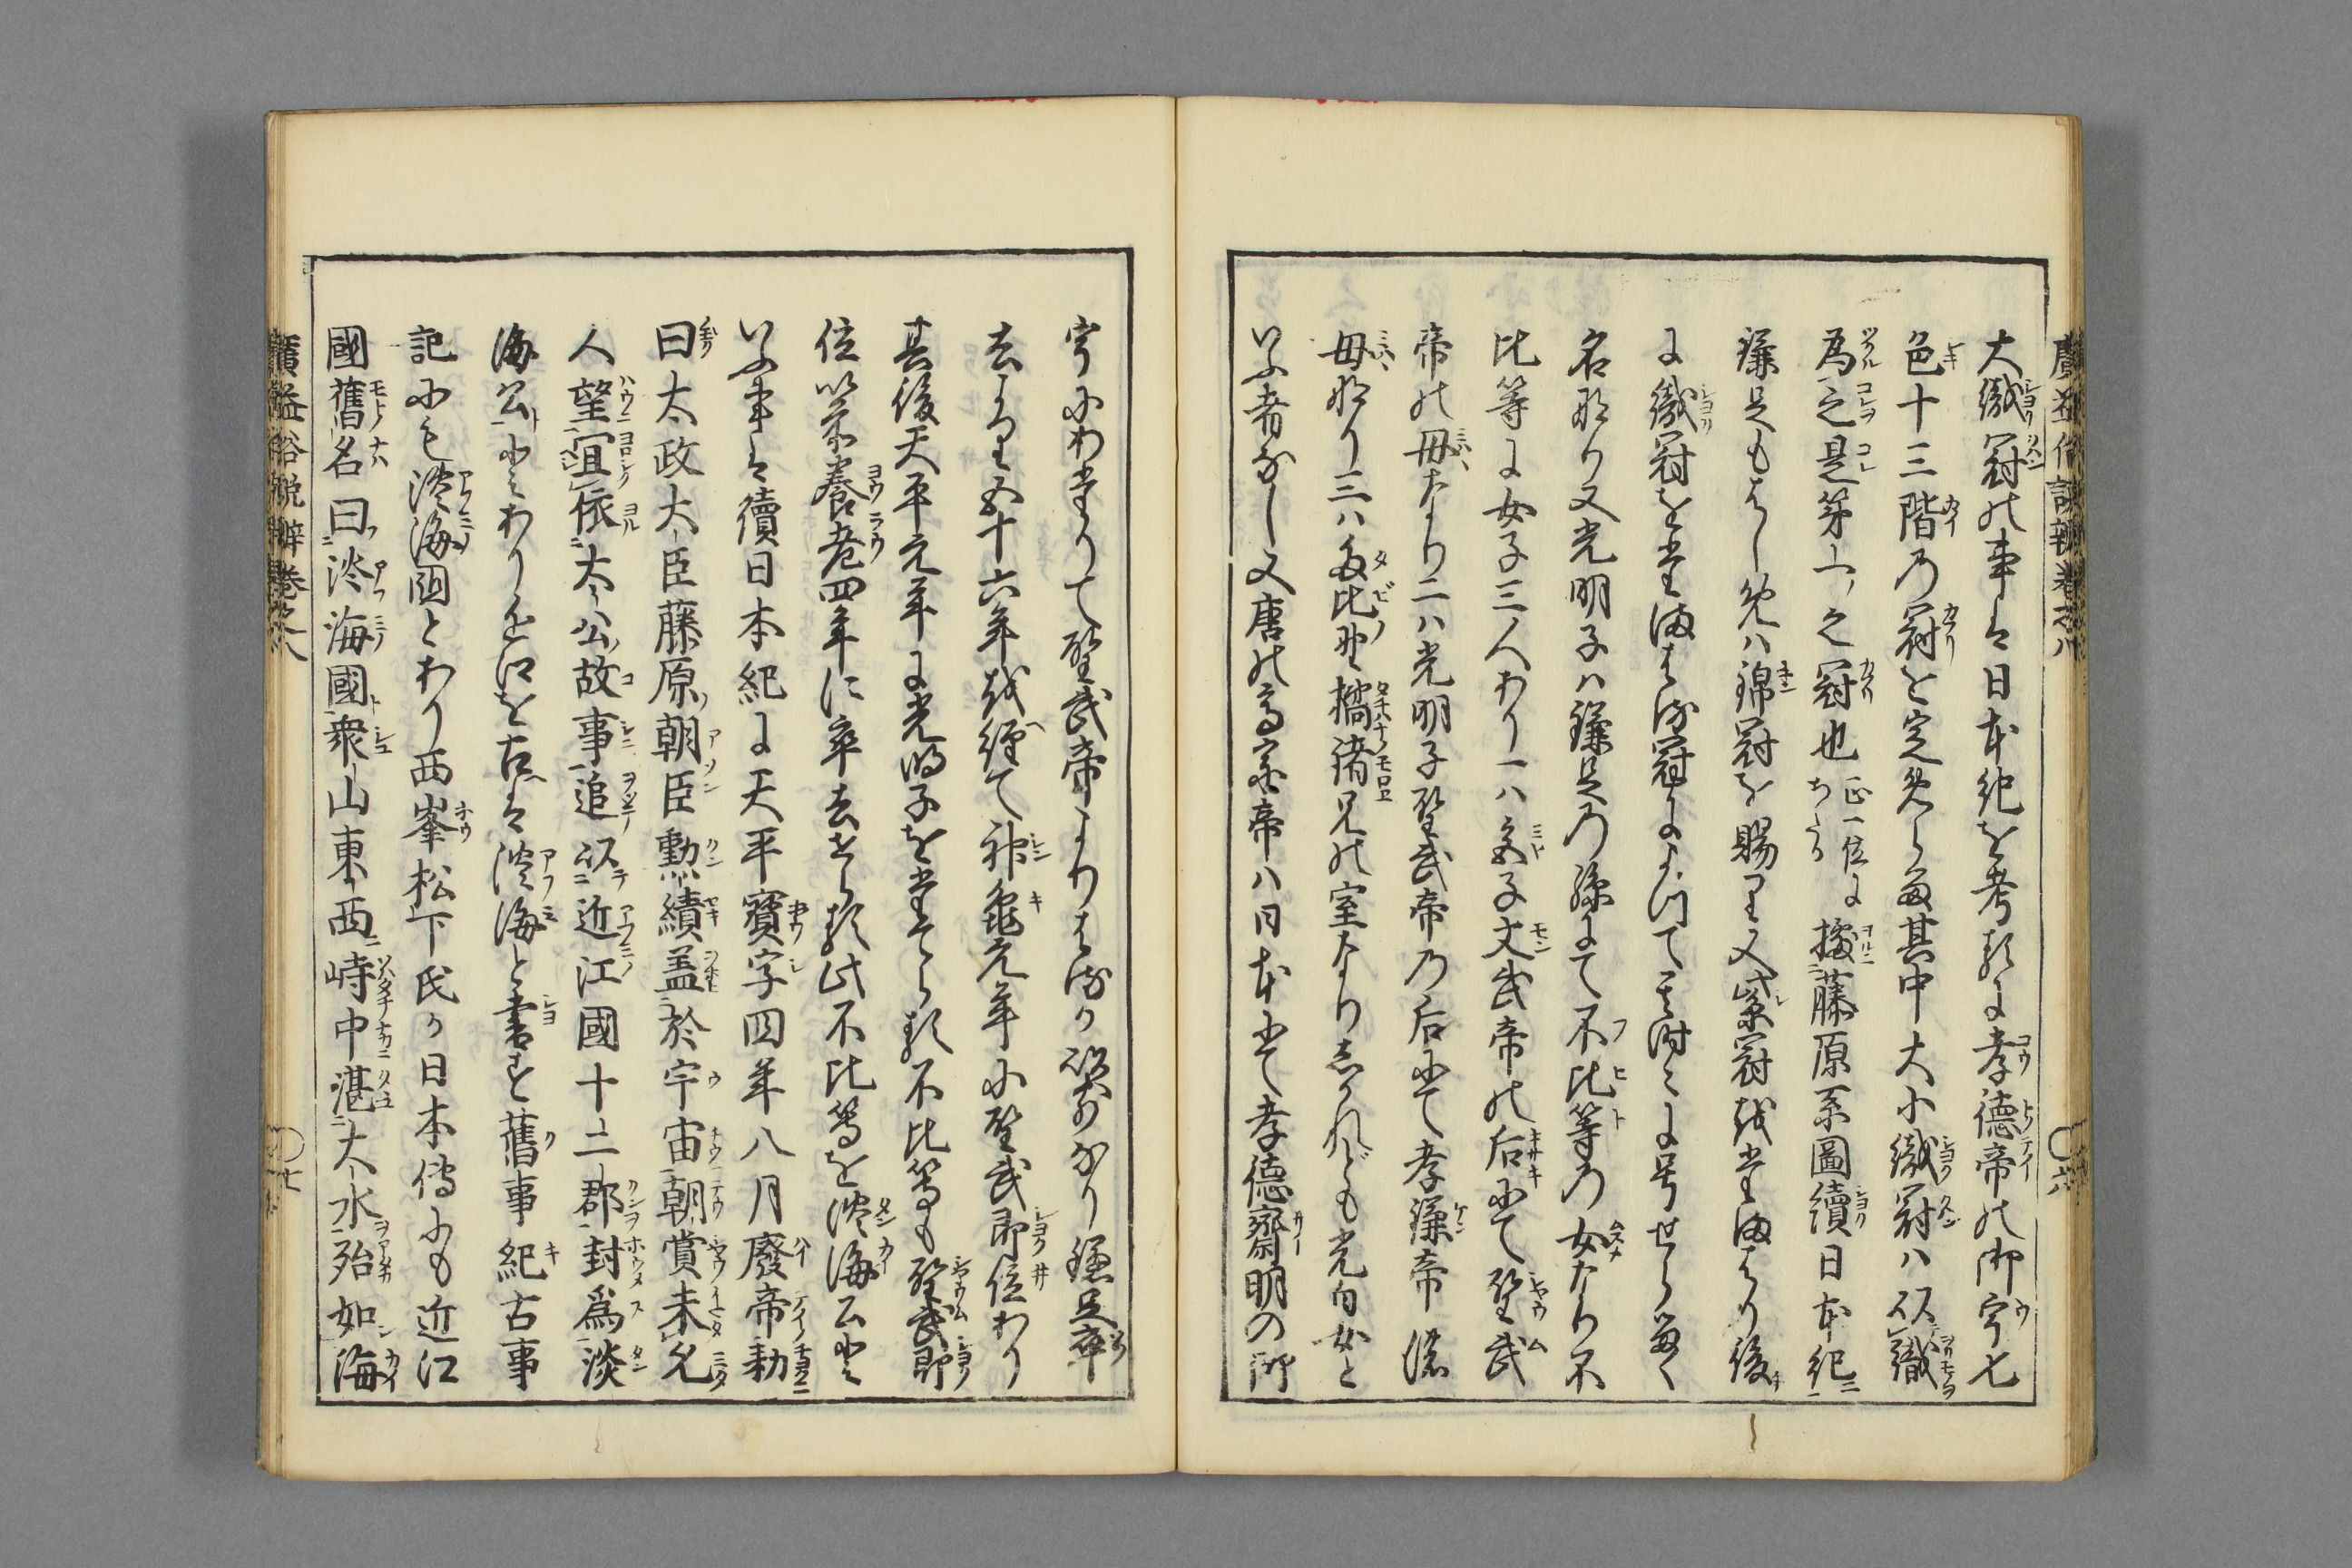 廣益俗説辨卷之八
大織冠の事は日本紀を考るに孝徳帝の御宇七
色十三階乃冠を定めらる其中大小織冠ハ以織
為之是第一之冠也正一位にあたる據藤原系圖續日本紀
鎌足もはじめハ錦冠を賜り又紫冠をたまはり後
に織冠をたまはる冠によつて其時々に号せらる
名なり又光明子ハ鎌足乃孫にて不比等乃女なり不
比等に女子三人あり一ハ宮子文武帝の后にて聖武
帝の母なり二ハ光明子聖武帝乃后にて孝謙帝の
母なり三ハ多比能橘諸兄の室なりしかれども光白女と
いふ者なし又唐の高宗帝ハ日本にて孝徳齋明の御
〇六
宇にあたりて聖武帝よりはるか以前なり鎌足卒
去より五十六年を経て神亀元年に聖武即位あり
其後天平元年に光明子を立らる不比等も聖武即
位以前養老四年に卒去せらる此不比等を淡海公と
いふ事は續日本紀に天平寶字四年八月廢帝勅
曰太政大臣藤原朝臣勲績盖於宇宙朝賞未允
人望宜依太公故事追以近江國十二郡封爲淡
海公とあり近江を古は淡海と書す舊事紀古事
記にも淡海國とあり西峯松下氏か日本傳にも近江
國舊名曰淡海國衆山東西峙中湛大水殆如海
廣益俗説辨卷之八
〇七